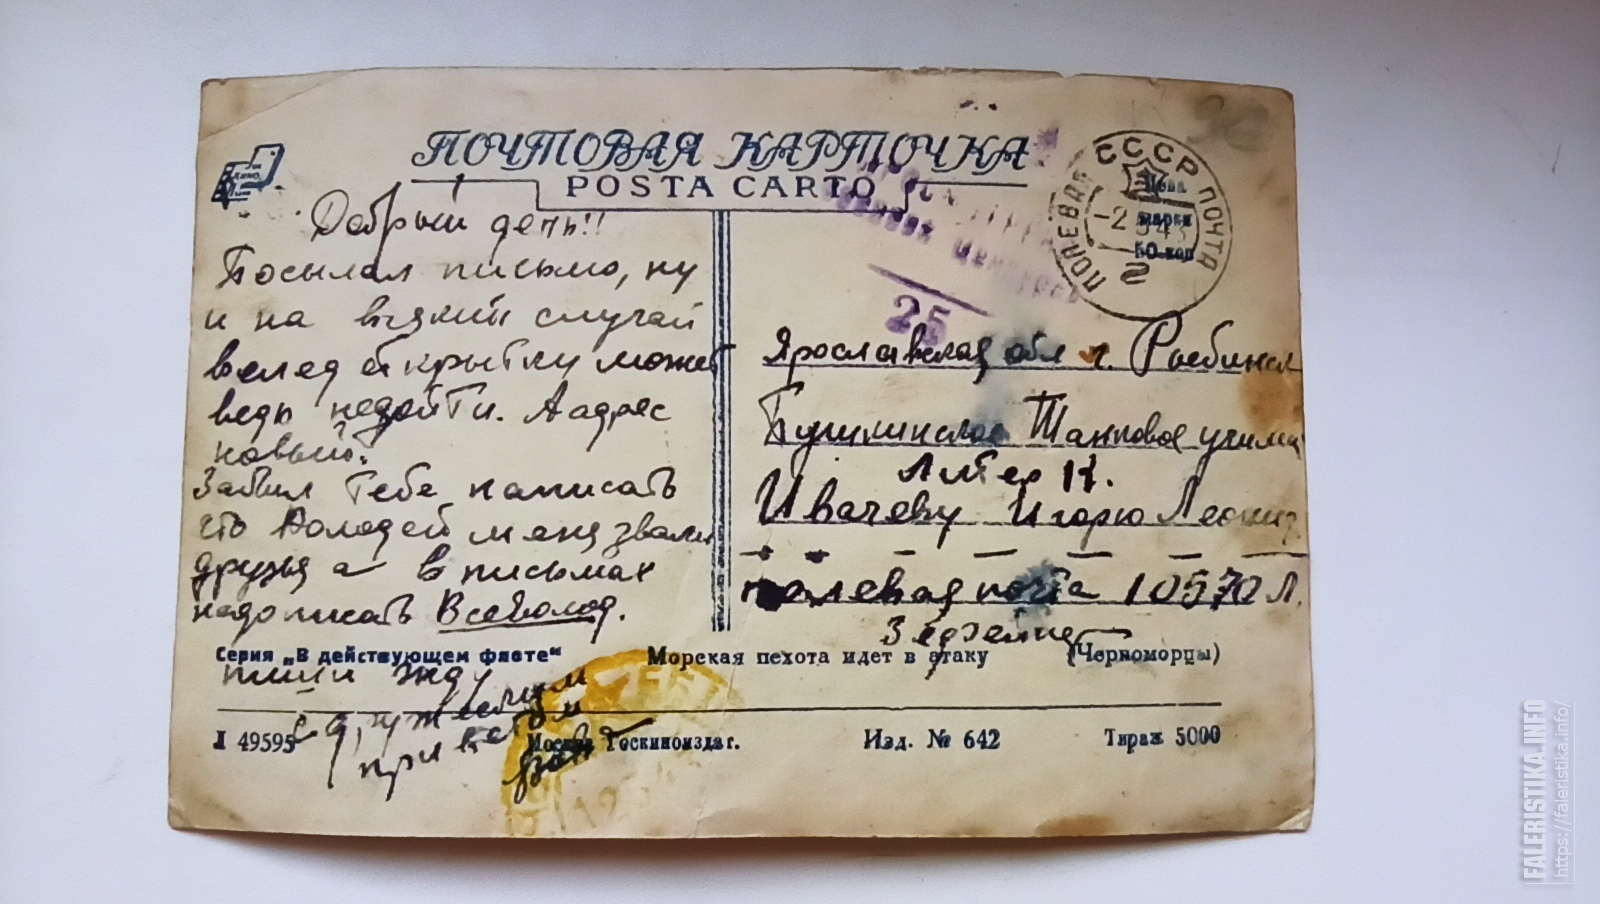 ПОЧТОВАЯ КАРТОЧКА
POSTA CARTO
КИНО
СССР ПОЧТА
ПОЛЕВАЯ
-2 43
2
марки
50 коп
Просмотрено
Военной Цензурой
25
Добрый день!!
Посылал письмо, ну
и на всякий случай
вслед открытку может
ведь недойти. А адрес
новый.
Забыл Тебе написать
что Володей меня звали
друзья а в письмах
надо писать Всеволод.
пиши жду
с дружеским
приветом
Ярославская обл г. Рыбинск
Пушкинское Танковое училищ
Литер К.
Ивачеву Игорю Леонид
полевая почта 10570 Л.
Серия „В действующем флоте"
Морская пехота идет в атаку
(Черноморцы)
Л 49595
Москва Госкиноиздат.
Изд. № 642
Тираж 5000
FALERISTIKA.INFO
https://faleristika.info/